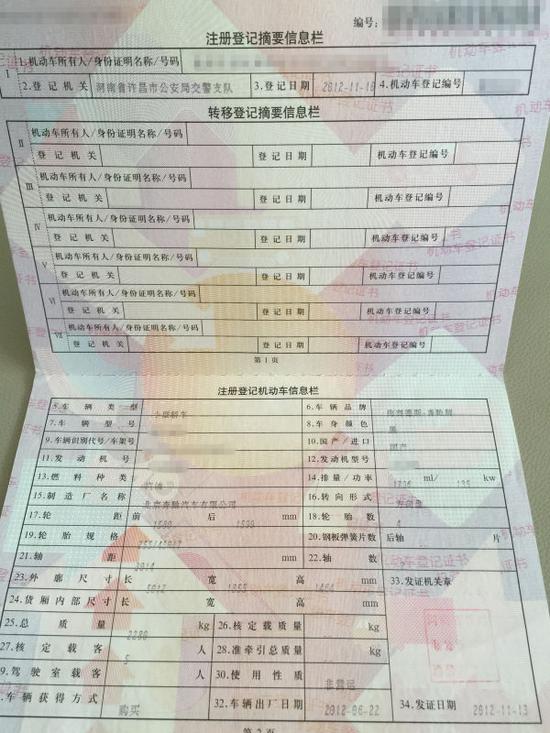 编号:
注册登记摘要信息栏
Ⅰ 1.机动车所有人/身份证明名称/号码
2.登记机关 河南省许昌市公安局交警支队 3.登记日期 2012-11-1 4.机动车登记编号
转移登记摘要信息栏
Ⅱ 机动车所有人/身份证明名称/号码
登记机关 登记日期 机动车登记编号
Ⅲ 机动车所有人/身份证明名称/号码
登记机关 登记日期 机动车登记编号
Ⅳ 机动车所有人/身份证明名称/号码
登记机关 登记日期 机动车登记编号
Ⅴ 机动车所有人/身份证明名称/号码
登记机关 登记日期 机动车登记编号
Ⅵ 机动车所有人/身份证明名称/号码
登记机关 登记日期 机动车登记编号
Ⅶ 机动车所有人/身份证明名称/号码
登记机关 登记日期 机动车登记编号
第1页
注册登记机动车信息栏
5.车辆类型 小型轿车 6.车辆品牌
7.车辆型号 8.车身颜色 黑
9.车辆识别代号/车架号 10.国产/进口 国产
11.发动机号 12.发动机型号
13.燃料种类 14.排量/功率 1796 ml/ 135 kw
15.制造厂名称 北京奔驰汽车有限公司 16.转向形式
17.轮距 前 1600 后 1599 mm 18.轮胎数 4
19.轮胎规格 20.钢板弹簧片数 后轴 片
21.轴距 3014 mm 22.轴数
23.外廓尺寸 长 5012 宽 高 mm 33.发证机关章
24.货厢内部尺寸 长 宽 高 mm
25.总质量 2280 kg 26.核定载质量 kg
27.核定载客 5 人 28.准牵引总质量 kg
9.驾驶室载客 人 30.使用性质 非营运
.车辆获得方式 购买 32.车辆出厂日期 2012-06-22 34.发证日期 2012-11-13
第2页